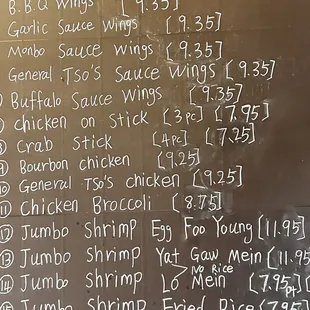 B.B.Q wings [9.35]
Garlic Sauce wings [9.35]
Monbo Sauce wings [9.35]
General .Tso's Sauce wings [9.35]
Buffalo Sauce wings [9.35]
chicken on Stick [3pc] [7.95]
⑧ Crab Stick [4pc] [7.25]
⑨ Bourbon chicken [9.25]
⑩ General TSo's chicken [9.25]
⑪ Chicken Broccoli [8.75]
⑫ Jumbo Shrimp Egg Foo Young [11.95]
⑬ Jumbo Shrimp Yat Gaw Mein [11.95
No Rice
⑭ Jumbo Shrimp Lo Mein [7.95 Pt]
⑮ Jumbo Shrimp Fried Rice [7.95